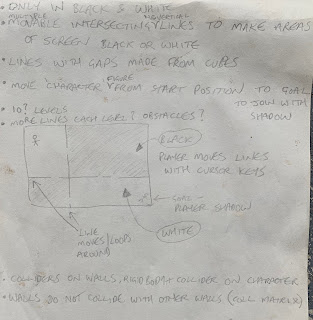 • ONLY IN BLACK & WHITE
MULTIPLE
• MOVABLE INTERSECTING LINES TO MAKE AREAS
OF SCREEN BLACK OR WHITE
• LINES WITH GAPS MADE FROM CUBES
FIGURE
• MOVE CHARACTER FROM START POSITION TO GOAL
TO JOIN WITH
SHADOW
• 10? LEVELS
• MORE LINES EACH LEVEL? OBSTACLES?
BLACK
PLAYER MOVES LINES
WITH CURSOR KEYS
GOAL
PLAYER SHADOW
LINE
MOVES/LOOPS
AROUND
WHITE
• COLLIDERS ON WALLS, RIGID BODY & COLLIDER ON CHARACTER
• WALLS DO NOT COLLIDE WITH OTHER WALLS (COLL MATRIX)